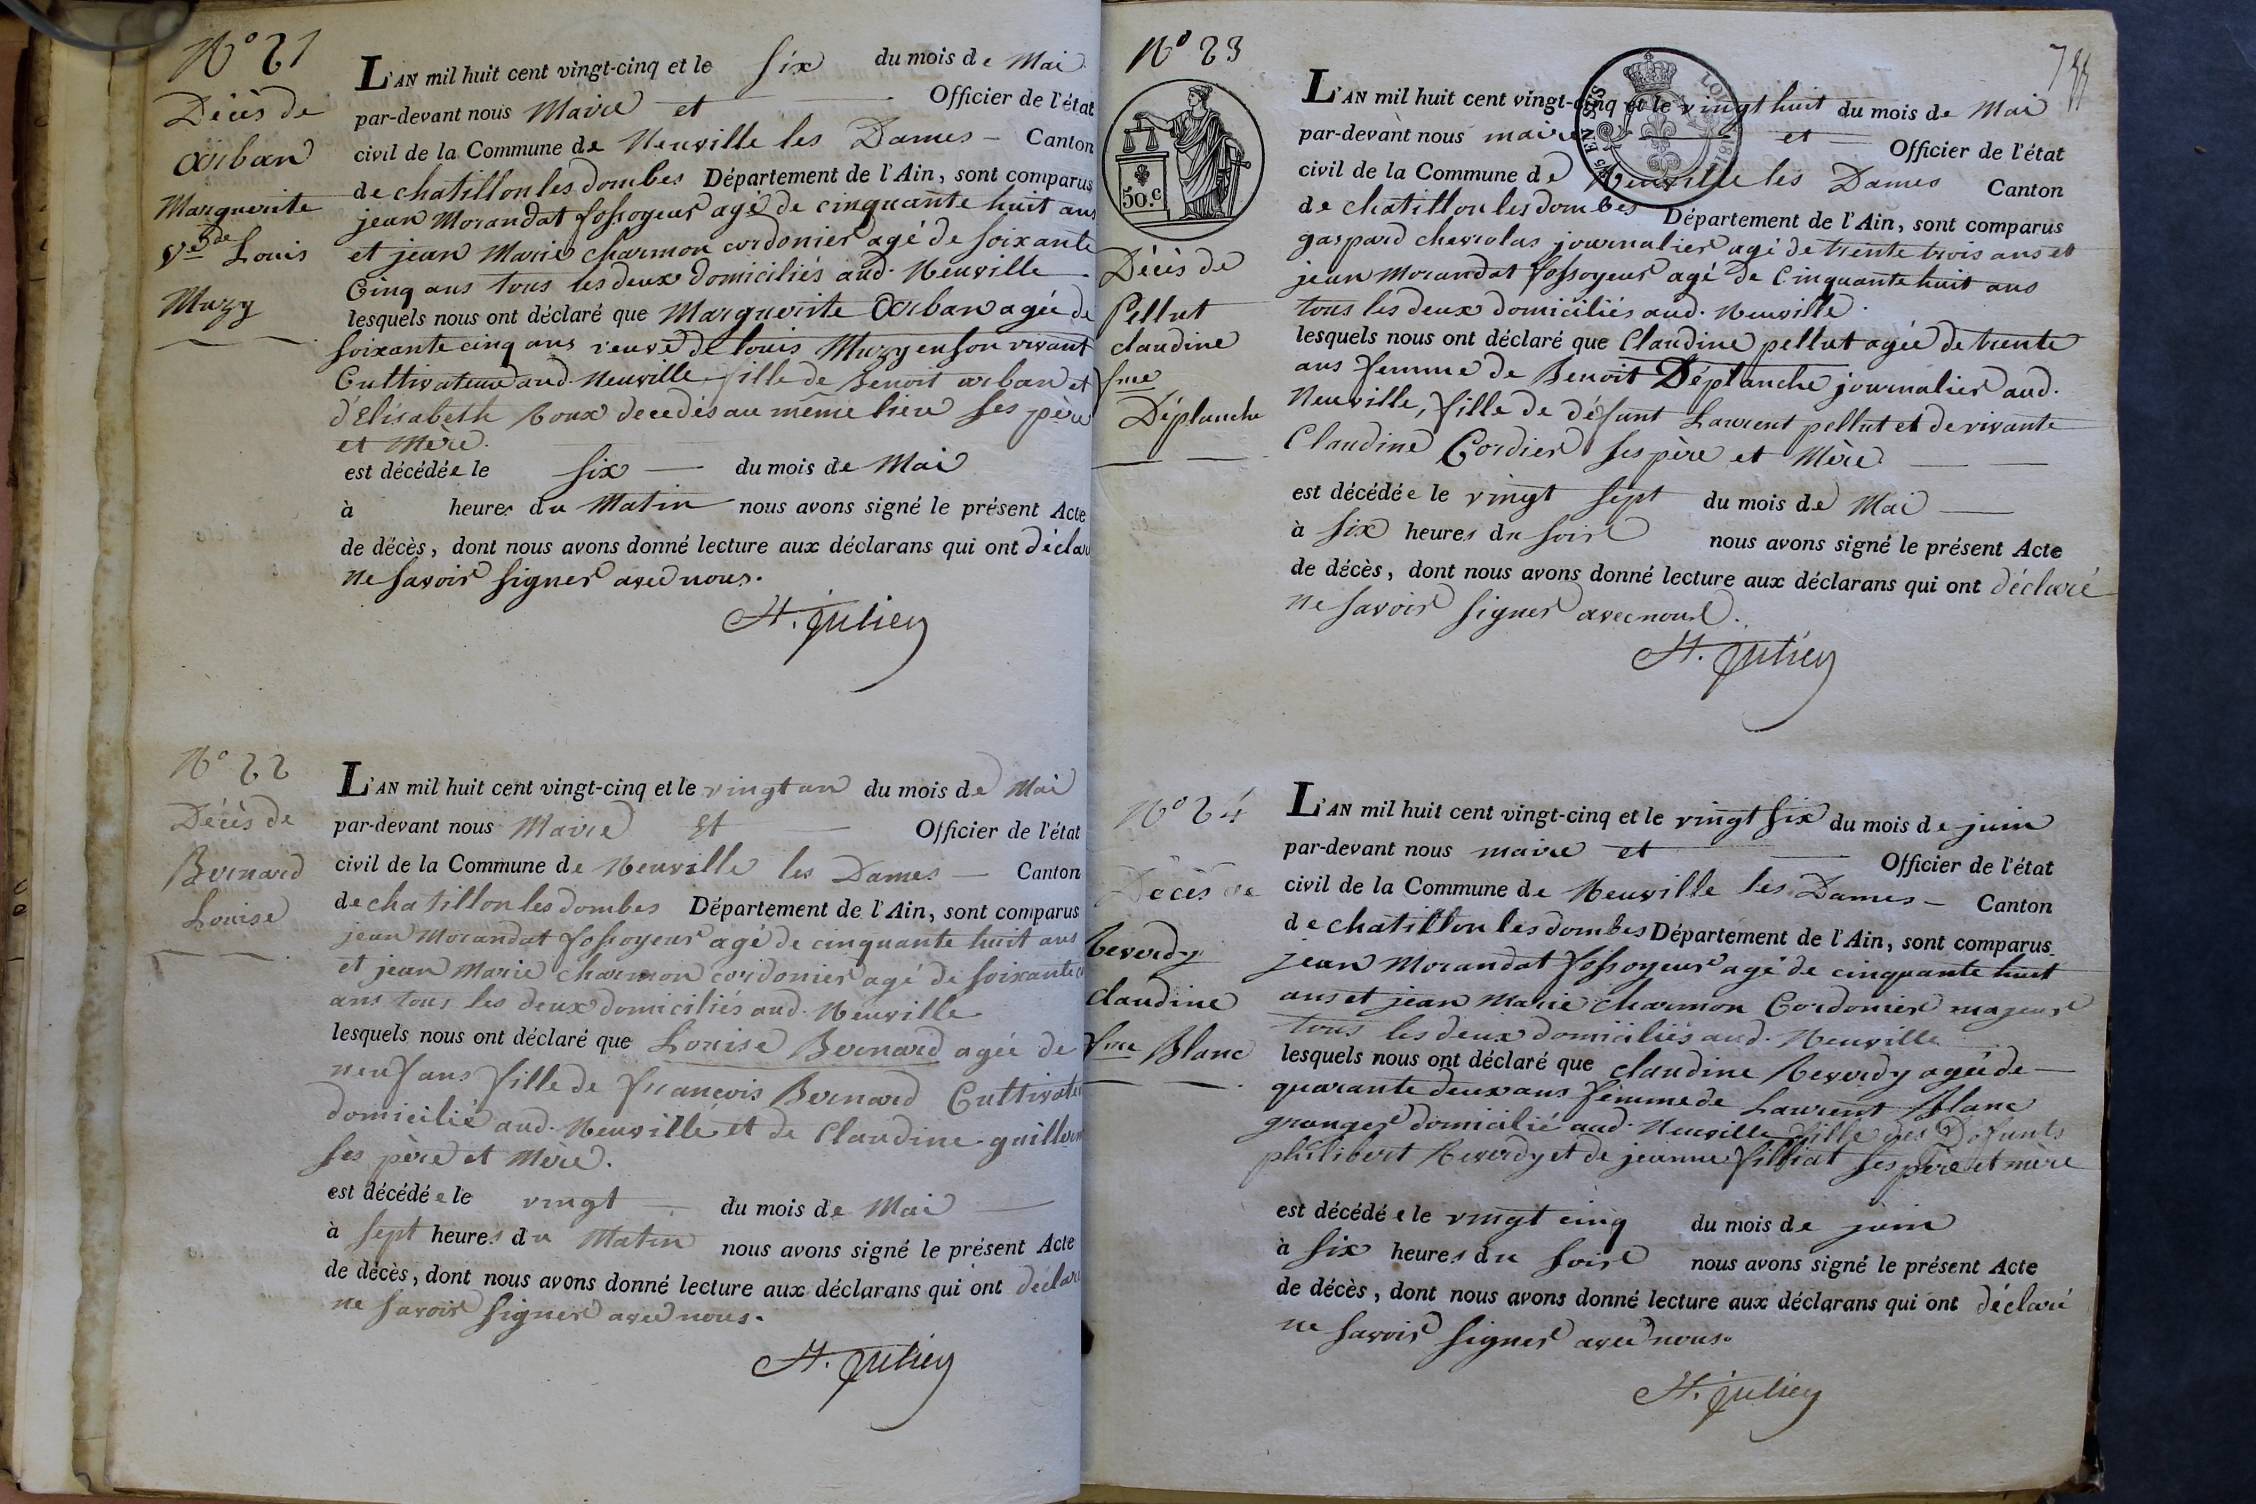 N° 21
Décès de
Arban
Marguerite
Ve de Louis
Muzy
L'AN mil huit cent vingt-cinq et le six du mois de Mai
par-devant nous Maire et Officier de l'état
civil de la Commune de Neuville les Dames Canton
de chatillon les dombes Département de l'Ain, sont comparus
jean Morandat fossoyeur agé de cinquante huit ans
et jean Marie Charmon cordonier agé de soixante
Cinq ans tous les deux domiciliés aud. Neuville
lesquels nous ont déclaré que Marguerite Arban agée de
soixante cinq ans veuve de louis Muzy en son vivant
Cultivateur aud. Neuville fille de Benoit arban et
d'Elisabeth Roux decedés au même lieu ses père
et Mère.
est décédée le six du mois de Mai
à heures du Matin nous avons signé le présent Acte
de décès, dont nous avons donné lecture aux déclarans qui ont déclar
ne savoir signer avec nous.
H. julien
N° 22
Décès de
Bernard
Louise
L'AN mil huit cent vingt-cinq et le vingt un du mois de Mai
par-devant nous Maire Et Officier de l'état
civil de la Commune de Neuville les Dames Canton
de chatillon les dombes Département de l'Ain, sont comparus
jean Morandat fossoyeur agé de cinquante huit ans
et jean Marie Charmon cordonier agé de soixante
ans tous les deux domiciliés aud. Neuville
lesquels nous ont déclaré que Louise Bernard agée de
neuf ans fille de françois Bernard Cultivate
domicilié aud. Neuville et de Claudine guillerm
ses père et Mère.
est décédée le vingt du mois de Mai
à sept heures du Matin nous avons signé le présent Acte
de décès, dont nous avons donné lecture aux déclarans qui ont déclaré
ne savoir signer avec nous.
H. julien
755
N° 23
50.c
Décès de
Pellut
claudine
fme
Déplanche
L'AN mil huit cent vingt-cinq et le vingt huit du mois de Mai
par-devant nous maire et Officier de l'état
civil de la Commune de Neuville les Dames Canton
de chatillon les dombes Département de l'Ain, sont comparus
gaspard chevrolas journalier agé de trente trois ans et
jean Morandat fossoyeur agé de Cinquante huit ans
tous les deux domiciliés aud. Neuville.
lesquels nous ont déclaré que Claudine pellut agée de trente
ans femme de Benoit Déplanche journalier aud.
Neuville, fille de défunt Laurent pellut et de vivante
Claudine Cordier ses père et Mère.
est décédée le vingt sept du mois de Mai
à six heures du soir nous avons signé le présent Acte
de décès, dont nous avons donné lecture aux déclarans qui ont déclaré
ne savoir signer avec nous.
H. julien
N° 24
Décès de
Reverdy
claudine
fme Blanc
L'AN mil huit cent vingt-cinq et le vingt six du mois de juin
par-devant nous maire et Officier de l'état
civil de la Commune de Neuville les Dames Canton
de chatillon les dombes Département de l'Ain, sont comparus
jean Morandat fossoyeur agé de cinquante huit
ans et jean Marie Charmon Cordonier majeur
tous les deux domiciliés aud. Neuville
lesquels nous ont déclaré que claudine Reverdy agée de
quarante deux ans femme de Laurent Blanc
granger domicilié aud. Neuville fille des Défunts
philibert Reverdy et de jeanne filliat ses père et mère
est décédée le vingt cinq du mois de juin
à six heures du soir nous avons signé le présent Acte
de décès, dont nous avons donné lecture aux déclarans qui ont déclaré
ne savoir signer avec nous.
H. julien